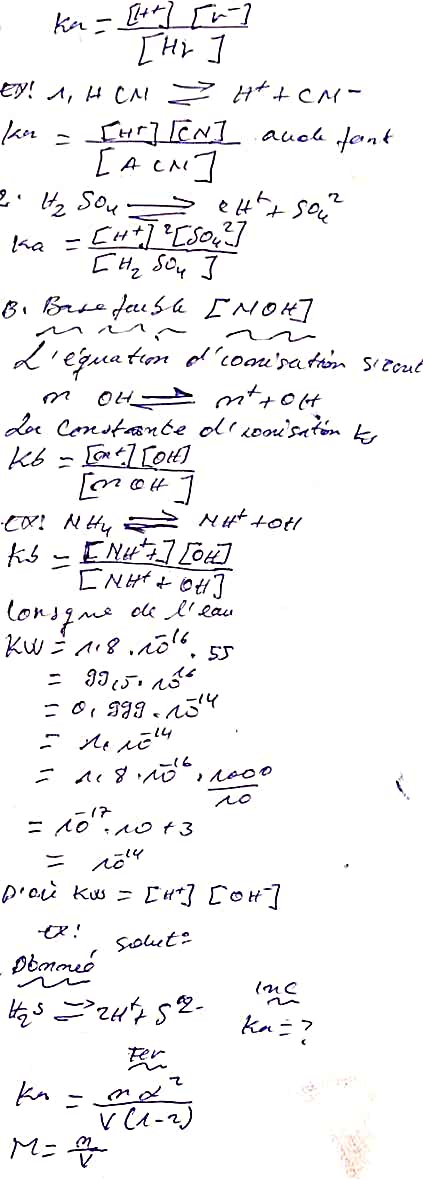 Ka = [H+] [r-] / [Hr]
Ex! 1, H CN ⇌ H+ + CN-
Ka = [H+] [CN] / [A CN]
2. H2 SO4 ⇌ 2H+ + SO4 2
Ka = [H+] 2 [SO4 2] / [H2 SO4]
B. Base faible [MOH]
L'équation d'ionisation
m OH ⇌ m+ + OH
La Constante d'ionisation
Kb = [m+] [OH] / [m OH]
Ex! NH4 ⇌ NH+ + OH
Kb = [NH+] [OH] / [NH+ + OH]
lorsque de l'eau
KW = 1,8 . 10-16 . 55
= 99,5 . 10-16
= 0,999 . 10-14
= 1. 10-14
= 1,8 . 10-16 . 1000/10
= 10-17 . 10 + 3
= 10-14
D'où KW = [H+] [OH-]
Ex! Solut=
Donnée
H2S ⇌ 2H+ + S2- Inc
Ka = ?
For
Ka = m α2 / V(1-2)
M = m/V